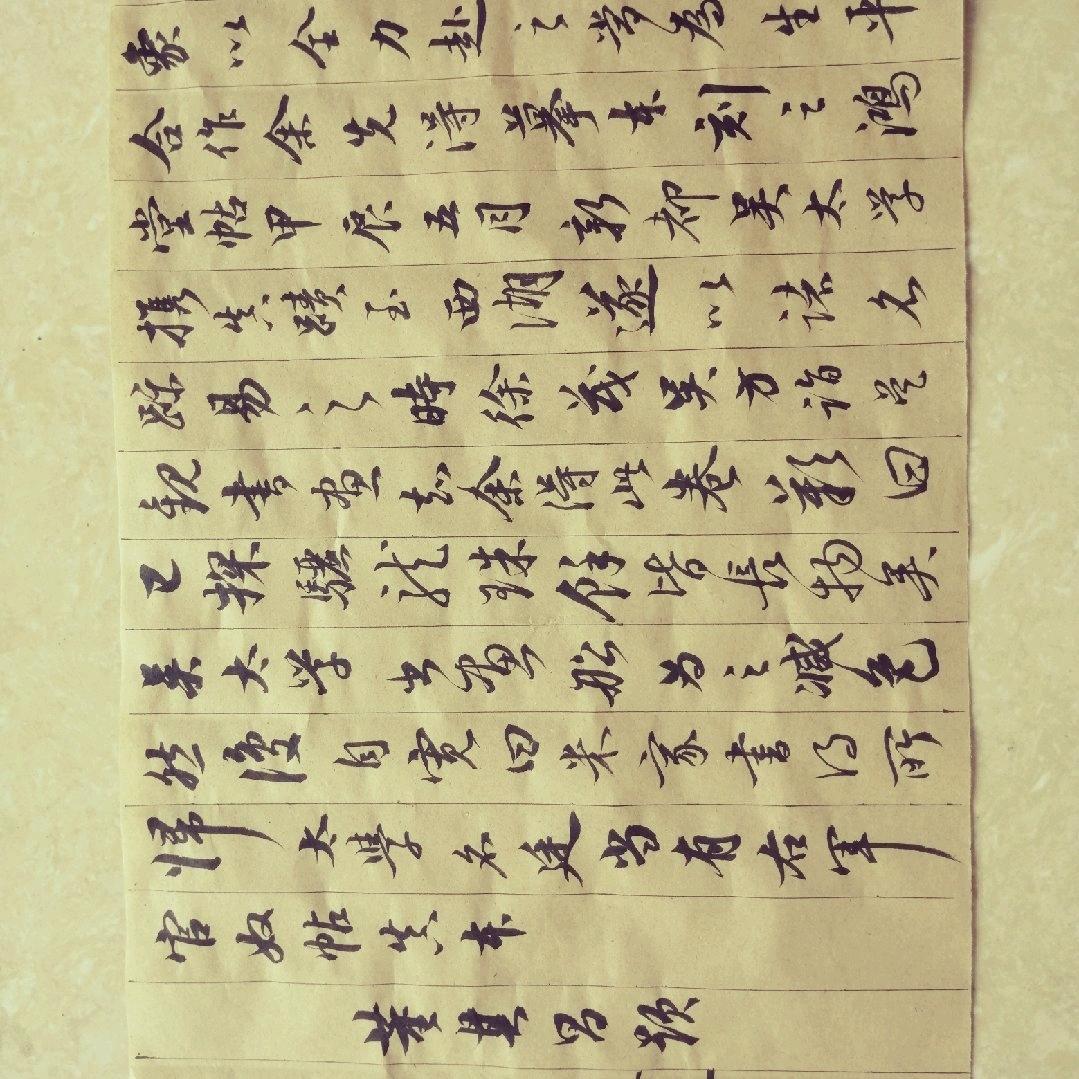 象以全力赴之當為生平
合作余先得摹本刻之鴻
堂帖甲辰五月新都吳太學
攜真蹟至西湖遂以諸名
跡易之時徐茂吳方詣吳
觀書畫知余得此卷歎曰
已探驪龍珠餘皆長物矣
吳太學書畫船為之減色
然復自寬曰米家書得所
歸太學名廷尚有右軍
官奴帖真本
董其昌題